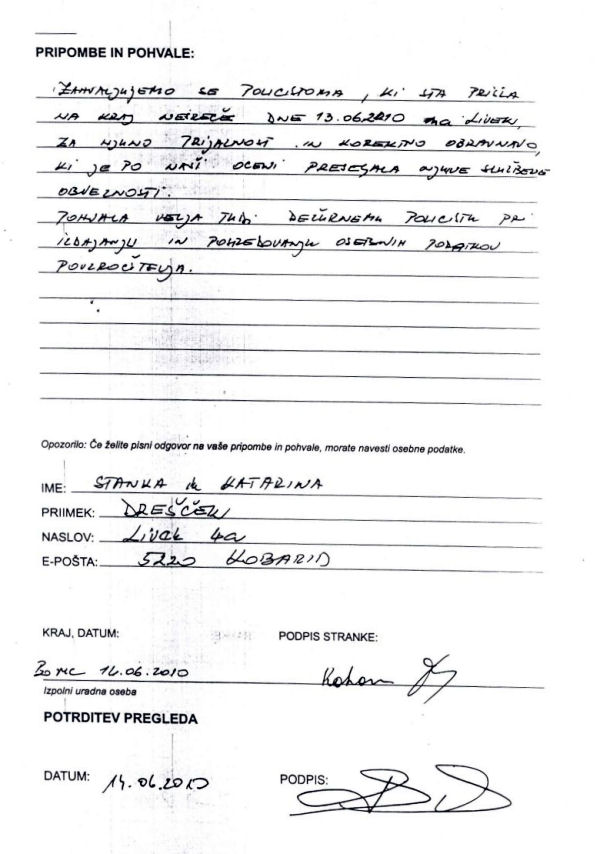 PRIPOMBE IN POHVALE:
ZAHVALJUJEMO SE POLICISTOMA, KI STA PRIŠLA
NA KRAJ NESREČE DNE 13.06.2010 na LIVEK,
ZA NJUNO PRIJAZNOST IN KOREKTNO OBRAVNAVO,
KI JE PO NAŠI OCENI PRESEGALA NJUNE SLUŽBENE
OBVEZNOSTI.
POHVALA VELJA TUDI DEŽURNEMU POLICISTU PRI
IZDAJANJU IN POSREDOVANJU OSEBNIH PODATKOV
POVZROČITELJA.
Opozorilo: Če želite pisni odgovor na vaše pripombe in pohvale, morate navesti osebne podatke.
IME: STANKA in KATARINA
PRIIMEK: DREŠČEK
NASLOV: Livek 4a
E-POŠTA: 5220 KOBARID
KRAJ, DATUM:
PODPIS STRANKE:
Bovec 14.06.2010
Izpolni uradna oseba
POTRDITEV PREGLEDA
DATUM: 14.06.2010
PODPIS: